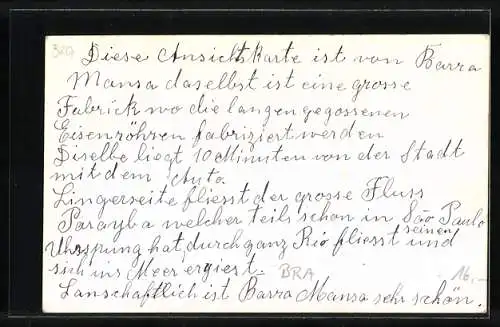 Diese Ansichtskarte ist von Barra
Mansa daselbst ist eine grosse
Fabrick wo die langen gegossenen
Eisenröhren fabriziert werden
Diselbe liegt 10 Minuten von der Stadt
mit dem Auto.
Lingerseite fliesst der grosse Fluss
Parayba welcher teils schon in São Paulo
seinen
Uhrsprung hat, durch ganz Rio fliesst und
sich ins Meer ergiest.
BRA
16,-
Lanschaftlich ist Barra Mansa sehr schön.